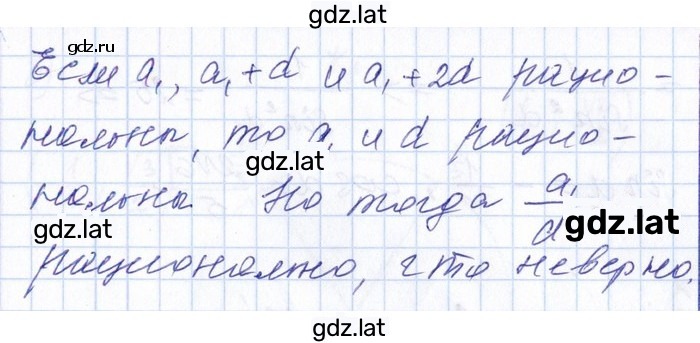 gdz.lat
gdz.ru
Если a₁, a₁ + d и a₁ + 2d рацио-
нальны, то a₁ и d рацио-
gdz.lat
нальны. Но тогда a₁/d
gdz.lat
gdz.lat
рационально, что неверно.
gdz.lat